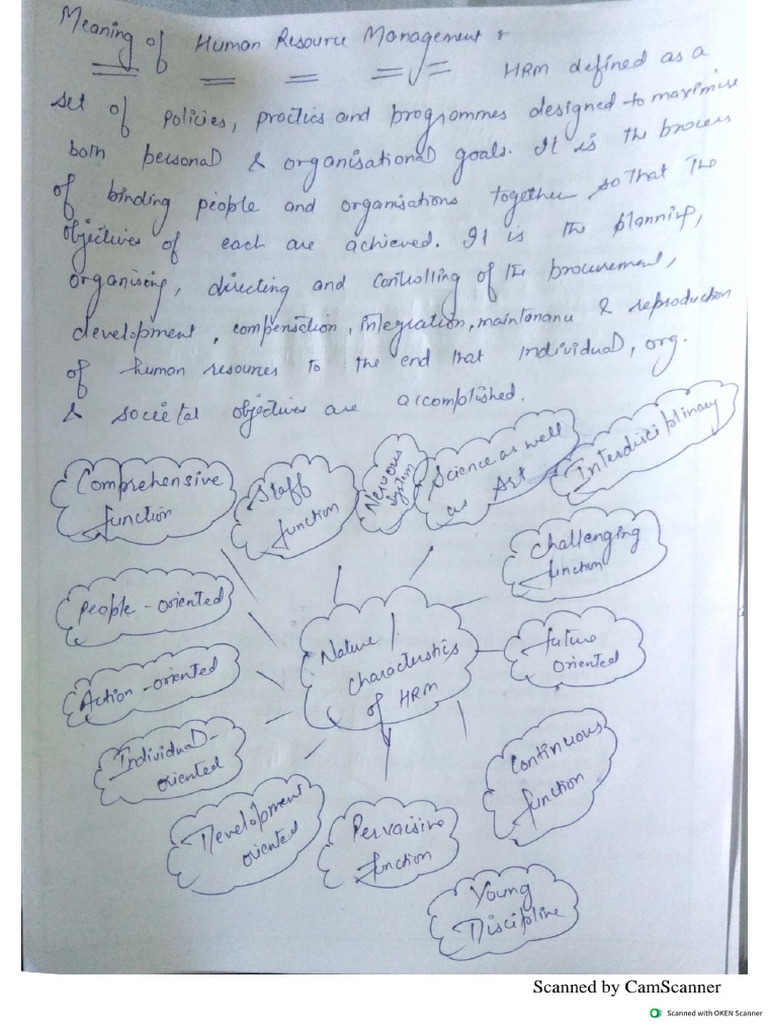 Meaning of Human Resource Management :
HRM defined as a
set of policies, practics and programmes designed to maximise
both personal & organisational goals. It is the process
of binding people and organisations together so that the
objectives of each are achieved. It is the planning,
organising, directing and controlling of the procurement,
development, compensation, integration, maintenance & reproduction
of human resources to the end that individual, org.
& societal objectives are accomplished.
Comprehensive
function
Staff
function
Nervous
system
Science as well
as Art
Interdisciplinary
Challenging
function
People-oriented
Nature /
characteristics
of HRM
future
oriented
Action-oriented
Individual-
oriented
Continuous
function
Development
oriented
Pervaisive
function
Young
Discipline
Scanned by CamScanner
Scanned with OKEN Scanner